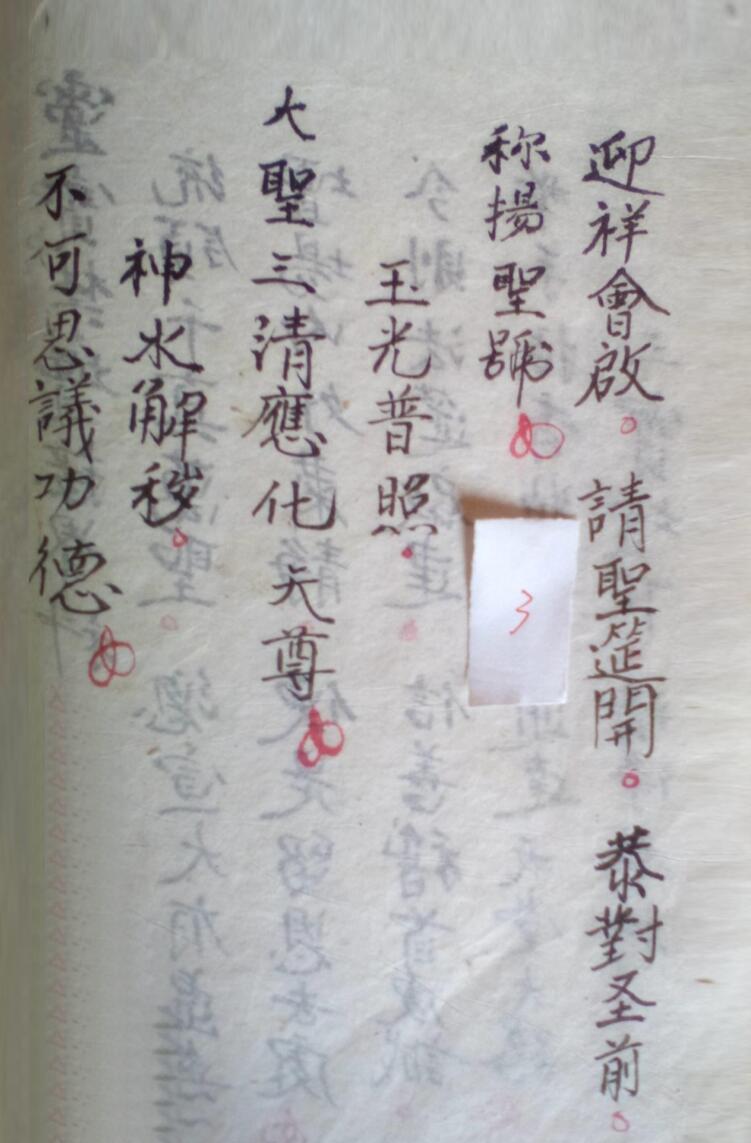 迎祥會啟。請聖筵開。恭對圣前。
称揚聖號
玉光普照。
大聖三清應化天尊
神水解秽。
不可思議功德
3